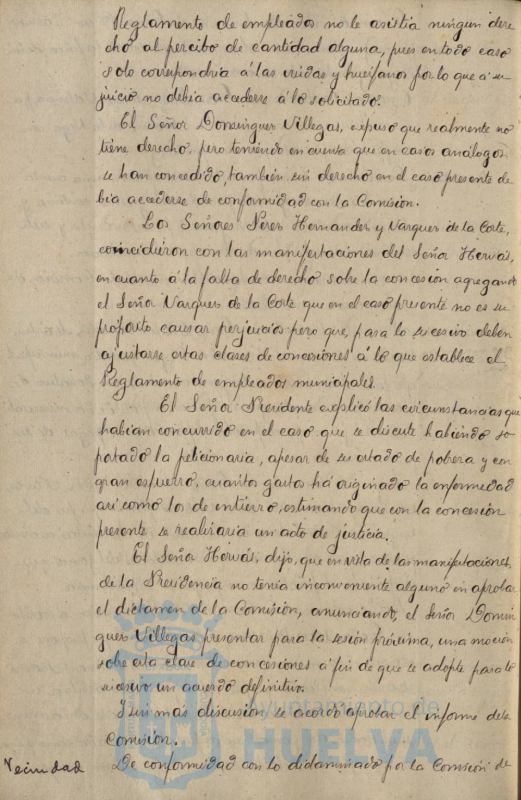 Reglamento de empleados no le asistia ningun dere
cho al percibo de cantidad alguna, pues en todo caso
solo corresponderia á las viudas y huérfanos por lo que a su
juicio no debia accederse á lo solicitado.
El Señor Dominguez Villegas, expuso que realmente no
tiene derecho, pero teniendo en cuenta que en casos análogos
se han concedido, también sin derecho en el caso presente de
bia accederse de conformidad con la Comisión.
Los Señores Perez Hernandez y Vazquez de la Corte,
coincidieron con las manifestaciones del Señor Hervás,
en cuanto á la falta de derecho sobre la concesion agregando
el Señor Vazquez de la Corte que en el caso presente no es su
propósito causar perjuicios pero que, para lo sucesivo deben
ajustarse estas clases de concesiones á lo que establece el
Reglamento de empleados municipales.
El Señor Presidente explicó las circunstancias que
habian concurrido en el caso que se discute habiendo so-
portado la peticionaria, apesar de su estado de pobreza y con
gran esfuerzo, cuantos gastos há originado la enfermedad
asi como los de entierro, estimando que con la concesión
presente se realizaria un acto de justicia.
El Señor Hervás, dijo, que en vista de las manifestaciones
de la Presidencia no tenia inconveniente alguno en aprobar
el dictamen de la Comisión, anunciando, el Señor Domin
guez Villegas presentar para la sesión próxima, una moción
sobre esta clase de concesiones á fin de que se adopte para lo
sucesivo un acuerdo definitivo.
Y sin más discusion, se acordó aprobar el informe de la
Comisión.
Vecindad De conformidad con lo dictaminado por la Comisión de
Ayuntamiento de
HUELVA